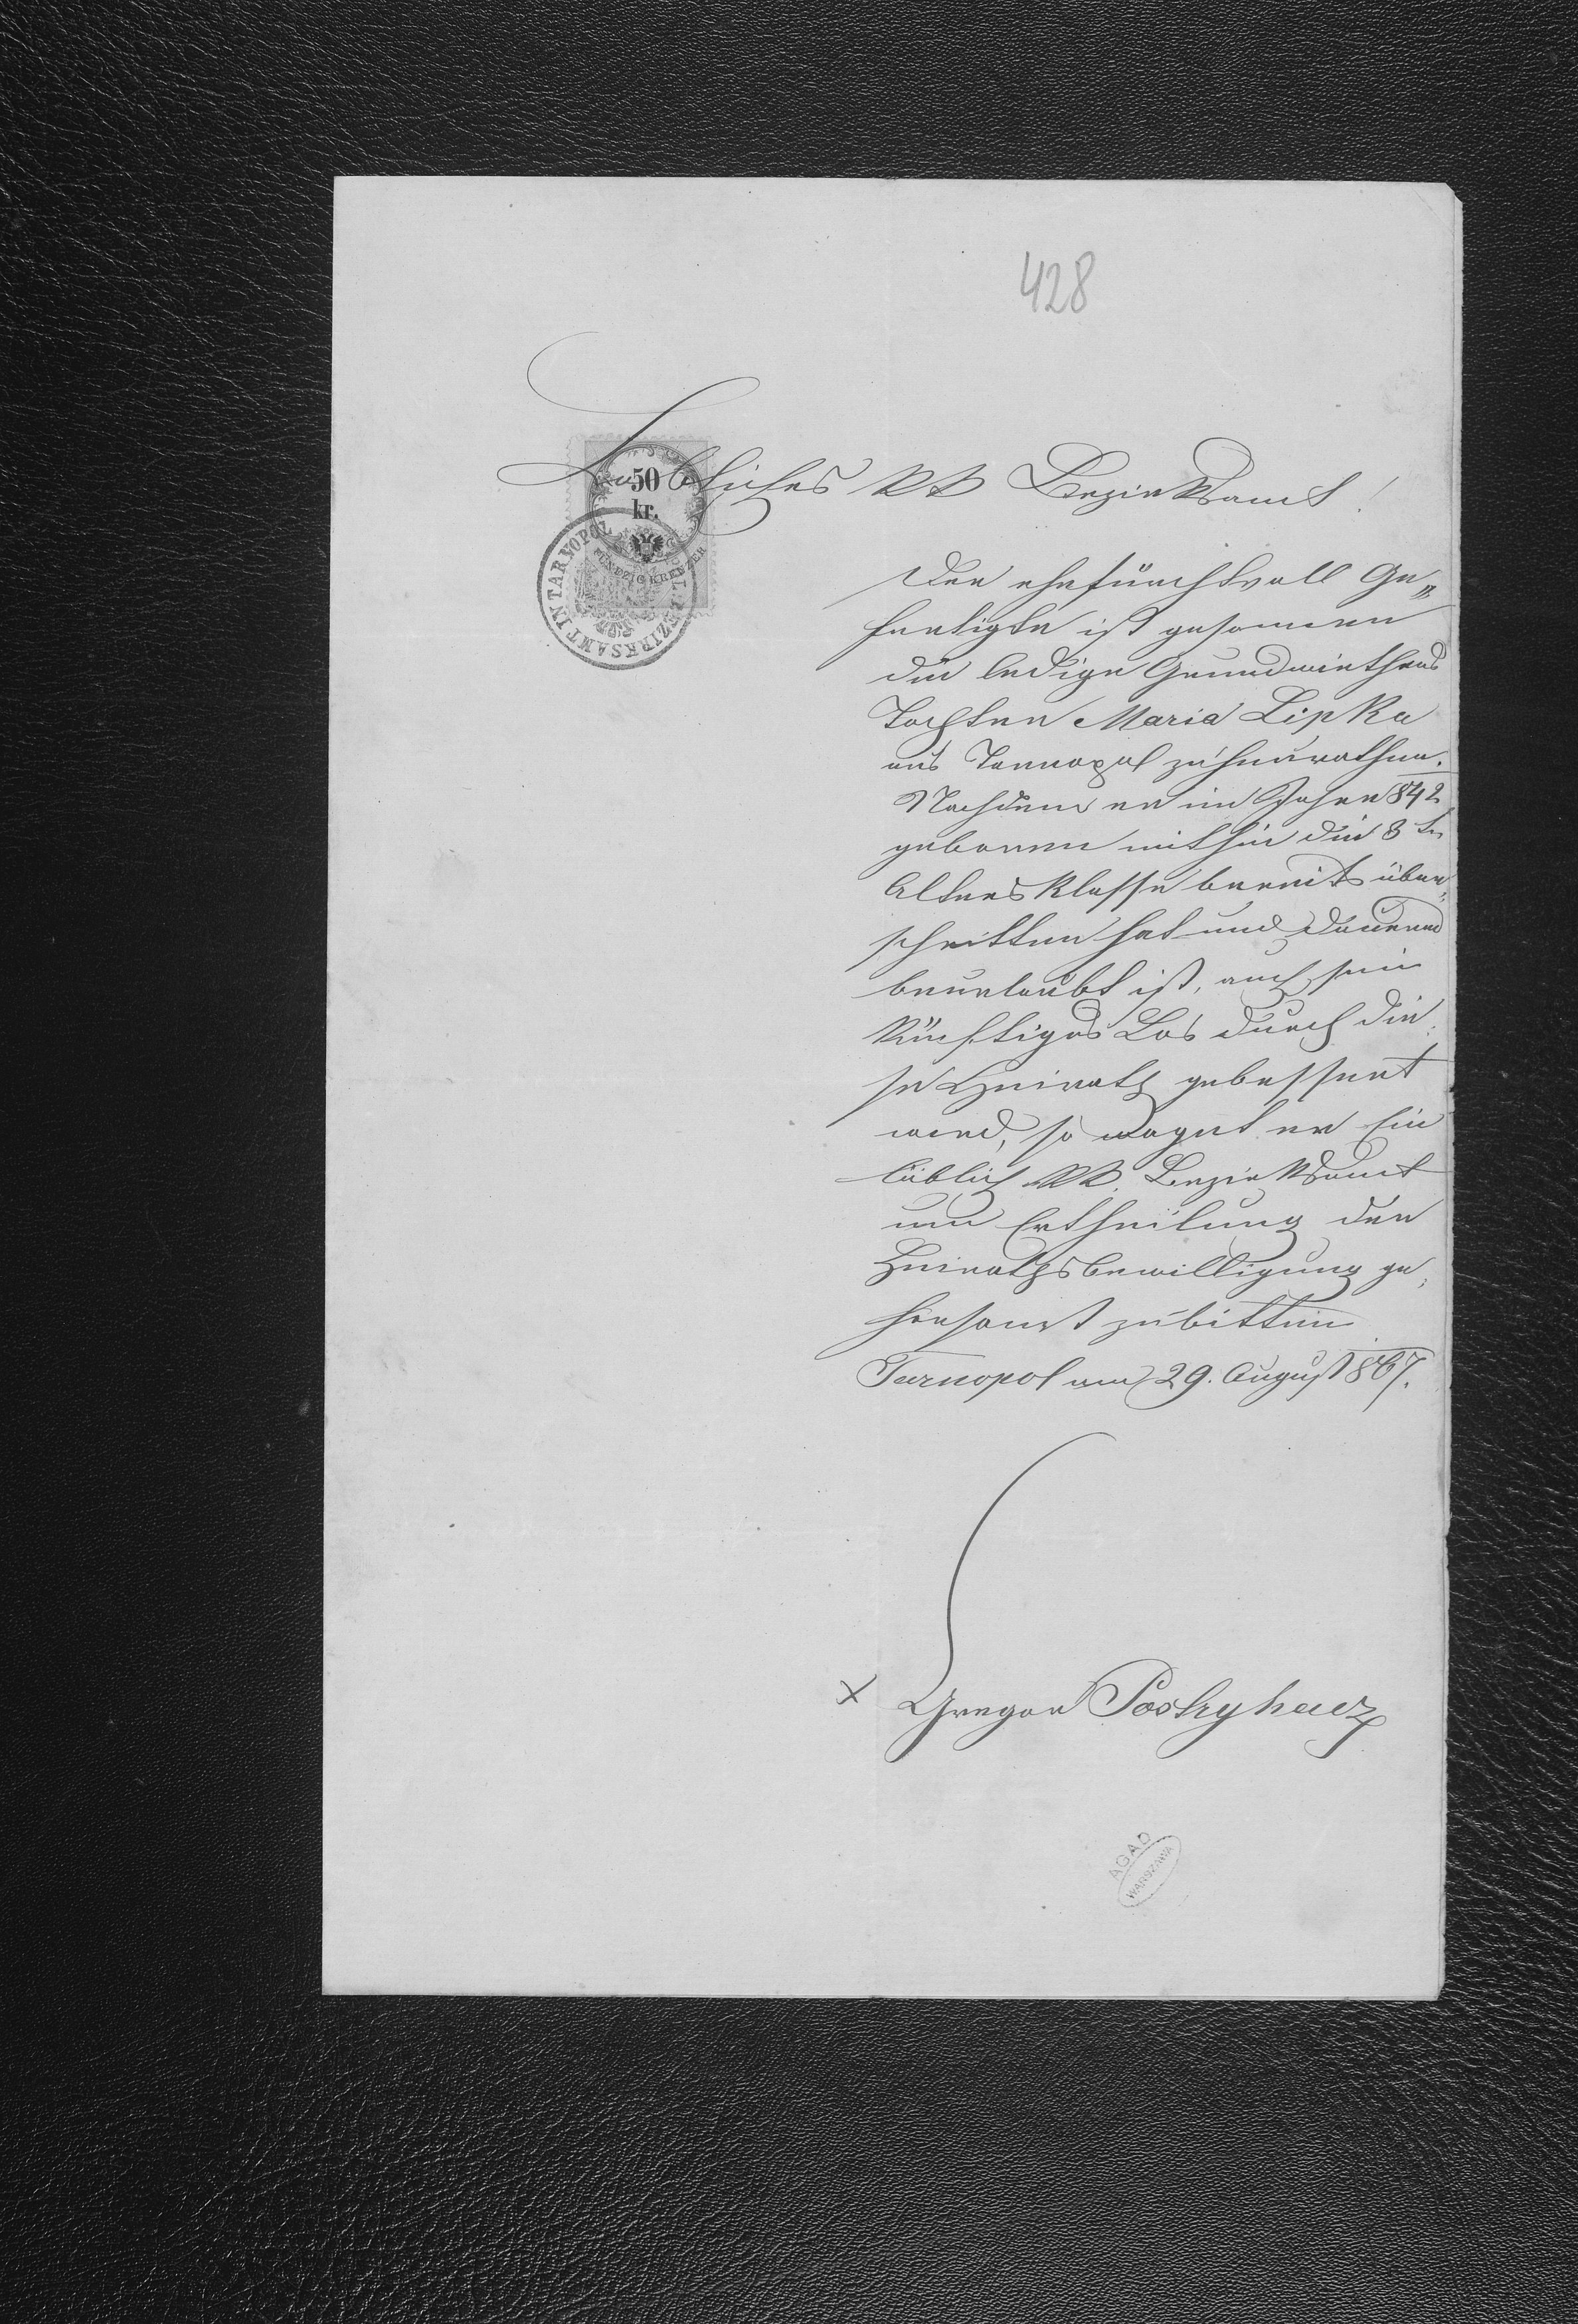 428
Löbliches kk Bezirksamt!
50
kr.
FÜNFZIG KREUZER
K. K. BEZIRKSAMT IN TARNOPOL
Der ehrfürchtsvoll Ge„
fertigte ist gesonnen
die ledige Grundwirthens
Tochter Maria Lipka
aus Tarnopol zu heurathen.
Nachdem er im Jahre 842
geboren mithin die 3te
Altersklasse bereits über„
schritten hat und dauernd
beurlaubt ist, auch sein
künftiges Los durch die„
se Heirath gebessert
wird, so waget er Ein
löblich kk. Bezirksamt
um Ertheilung der
Heirathsbewilligung ge„
horsamst zu bitten
Tarnopol am 29. August 867.
x Gregor Postryhacz
AGAD
WARSZAWA